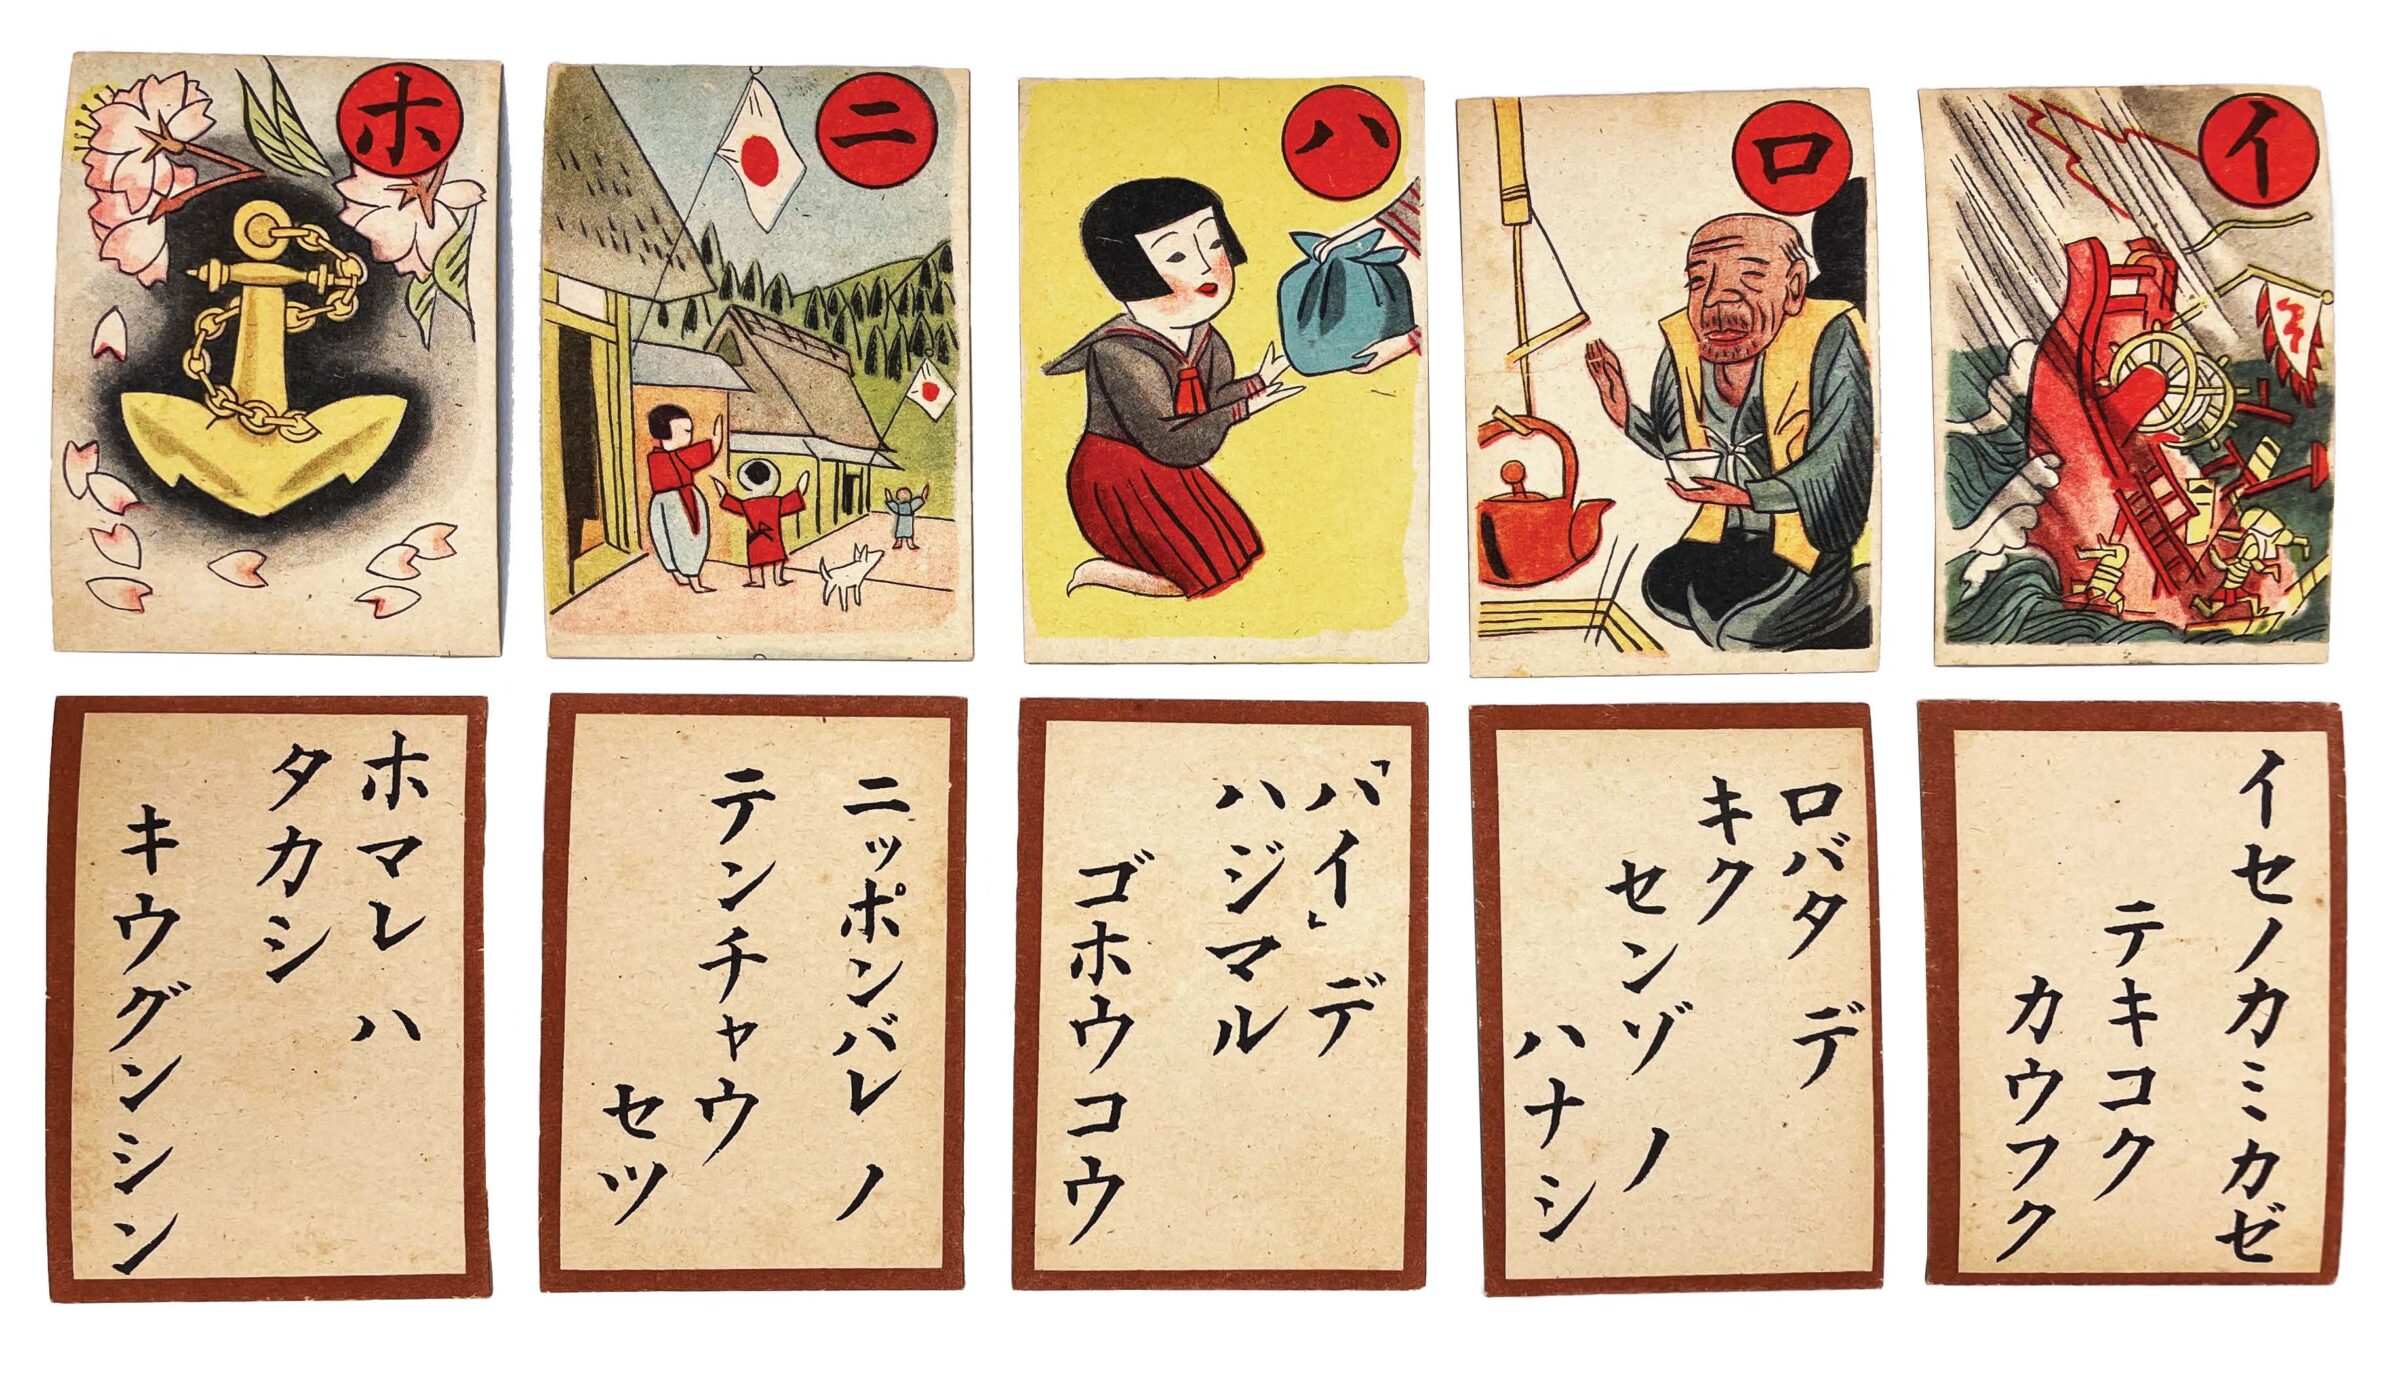 イ
ロ
ハ
ニ
ホ
イセノカミカゼ
テキコク
カウフク
ロバタ デ
キク
センゾ ノ
ハナシ
「ハイ」デ
ハジマル
ゴホウコウ
ニッポンバレ ノ
テンチャウ
セツ
ホマレ ハ
タカシ
キウグンシン